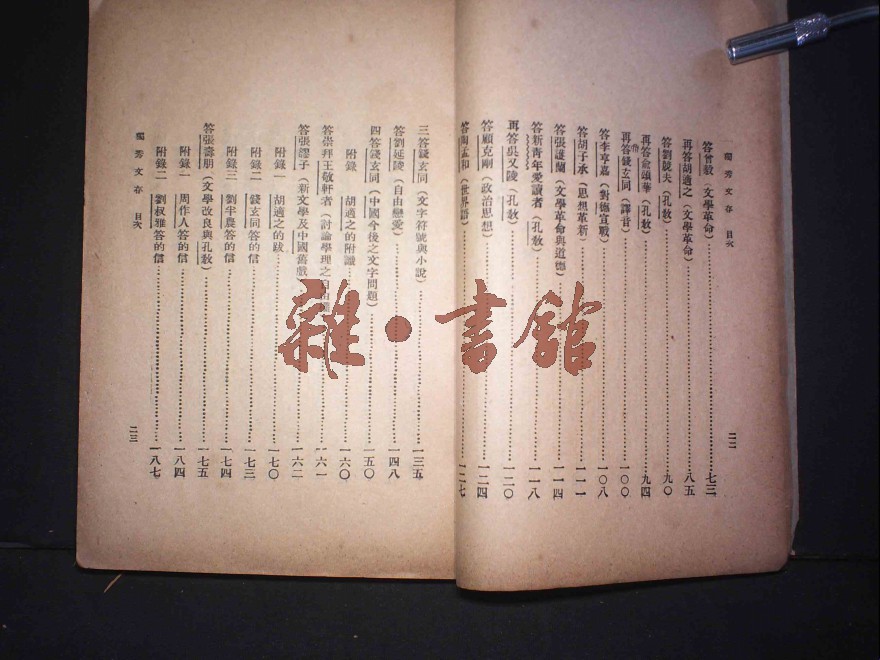 獨秀文存　目次　二二
答曾毅（文學革命）……七三
再答胡適之（文學革命）……八五
答劉競夫（孔教）……九〇
再答俞頌華（孔教）……九四
再答錢玄同（譯音）……一〇〇
答李亨嘉（對德宣戰）……一〇八
答胡子承（思想革新）……一一一
答張護蘭（文學革命與道德）……一一四
答新青年愛讀者（孔教）……一一八
再答吳又陵（孔教）……一二〇
答顧克剛（政治思想）……一二四
答陶孟和（世界語）……一二七
三答錢玄同（文字符號與小說）……一三五
答劉延陵（自由戀愛）……一四八
四答錢玄同（中國今後之文字問題）……一五〇
附錄　胡適之的附識……一六〇
答崇拜王敬軒者（討論學理之自由……一六一
答張繆子（新文學及中國舊戲……一六二
附錄一　胡適之的跋……一七〇
附錄二　錢玄同答的信……一七三
附錄三　劉半農答的信……一七四
答張壽朋（文學改良與孔教）……一七五
附錄一　周作人答的信……一八四
附錄二　劉叔雅答的信……一八七
獨秀文存　目次　二三
雜・書館